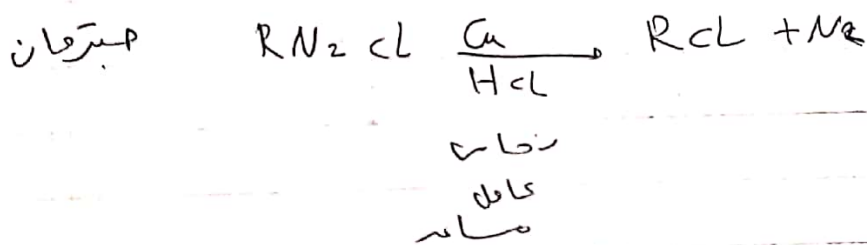 جبترمان RN2 CL Cu RCL + N2
HCL
نحاس
عامل
مساعد